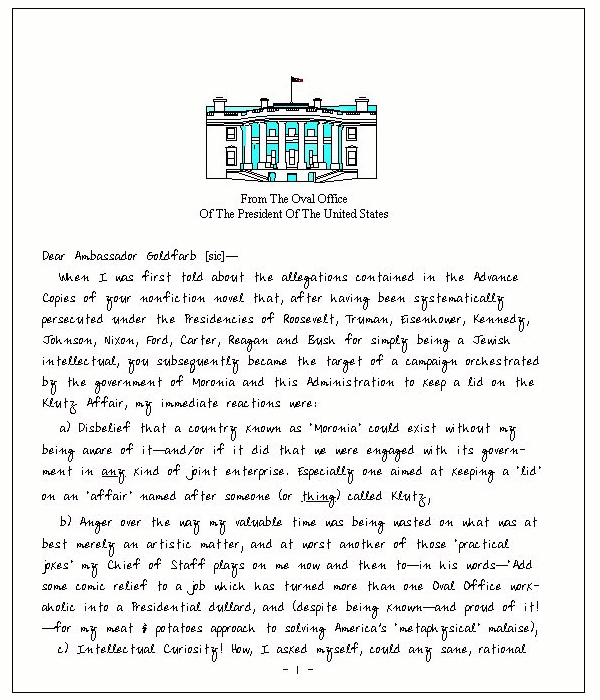 From The Oval Office
Of The President Of The United States
Dear Ambassador Goldfarb [sic]—
When I was first told about the allegations contained in the Advance
Copies of your nonfiction novel that, after having been systematically
persecuted under the Presidencies of Roosevelt, Truman, Eisenhower, Kennedy,
Johnson, Nixon, Ford, Carter, Reagan and Bush for simply being a Jewish
intellectual, you subsequently became the target of a campaign orchestrated
by the government of Moronia and this Administration to keep a lid on the
Klutz Affair, my immediate reactions were:
a) Disbelief that a country known as "Moronia" could exist without my
being aware of it—and/or if it did that we were engaged with its govern-
ment in any kind of joint enterprise. Especially one aimed at keeping a "lid"
on an "affair" named after someone (or thing) called Klutz,
b) Anger over the way my valuable time was being wasted on what was at
best merely an artistic matter, and at worst another of those "practical
jokes" my Chief of Staff plays on me now and then to—in his words—"Add
some comic relief to a job which has turned more than one Oval Office work-
aholic into a Presidential dullard, and (despite being known—and proud of it!
—for my meat & potatoes approach to solving America's "metaphysical" malaise),
c) Intellectual Curiosity! How, I asked myself, could any sane, rational
- 1 -